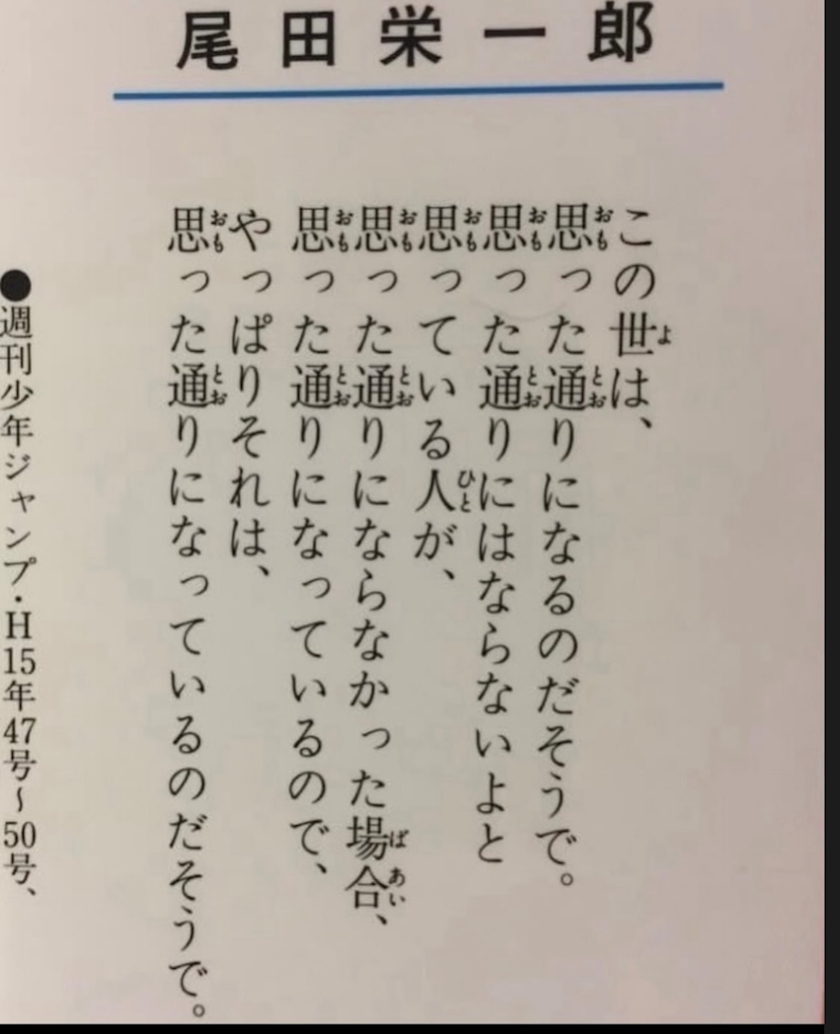 尾田栄一郎
この世は、
思った通りになるのだそうで。
思った通りにはならないよと
思っている人が、
思った通りにならなかった場合、
思った通りになっているので、
やっぱりそれは、
思った通りになっているのだそうで。
●週刊少年ジャンプ・H15年47号〜50号、